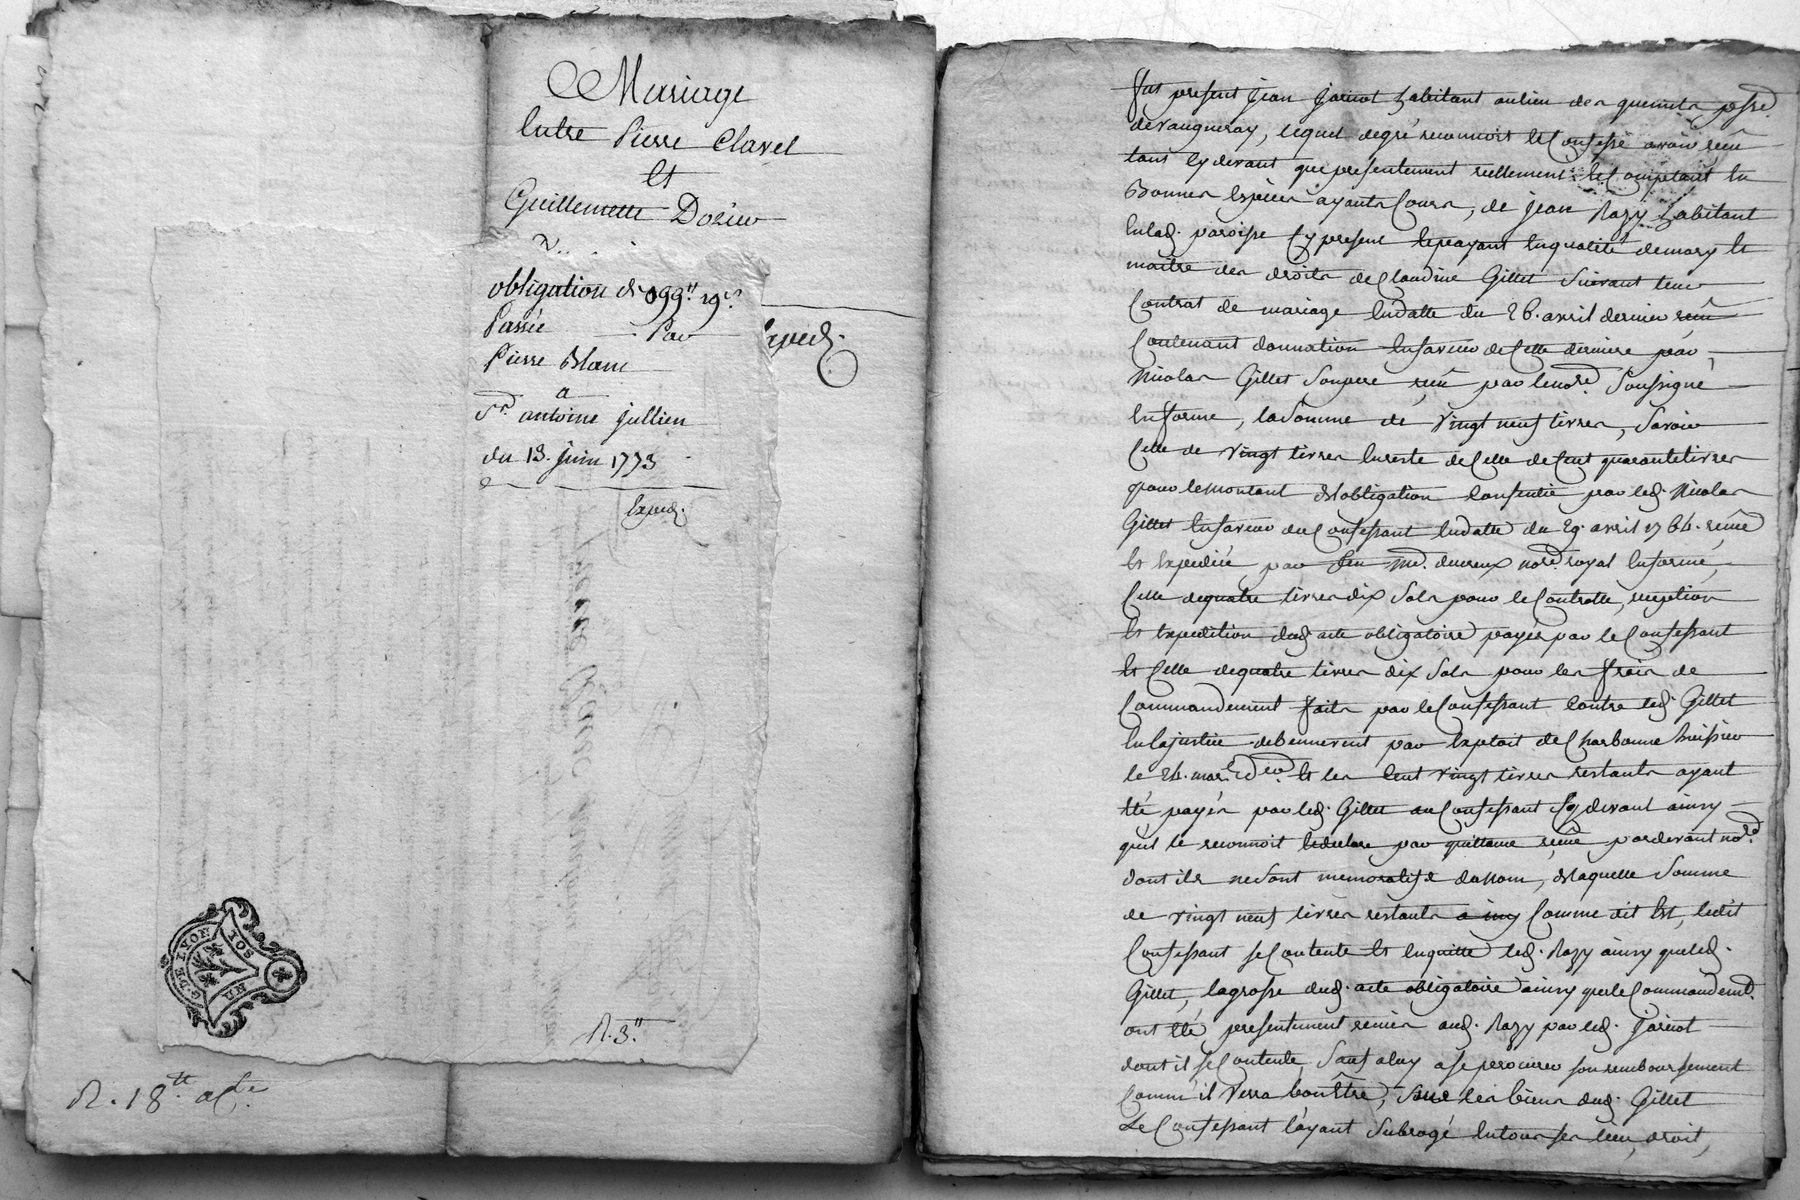 Mariage
Entre Pierre Clavel
Et
Guillemette Dozieu
obligation de 099# 19s
Passée Par
Pierre Blanc
a
Sr. antoine jullien
du 13. juin 1773
Exped.
Exped.
G. DE LYON
UN SOL
R. 3"
R. 18tt
fut present jean jaricot habitant au lieu des
de vaugneray, lequel de gré reconnoit et Confesse avoir reçu
tant Cy devant que presentement réellement et Comptant en
Bonnes Espèces ayants Cours, de jean Razy habitant
En lad. paroisse Cy present Et payant En qualité de mary Et
maitre des droits de Claudine Gillet Suivant leur
Contrat de mariage En datte du 26. avril dernier reçû
Contenant donnation En faveur de Cette derniere par
Nicolas Gillet Son pere, reçû par le nore. Soussigné
En forme, la Somme de Vingt neuf livres, Savoir
Celle de Vingt livres En reste de Celle de Cent quarante livres
pour le montant d'obligation Consentie par led. Nicolas
Gillet En faveur du Confessant En datte du 29. avril 1764. reçûe
Et Expediée par feu Me. nore. royal En forme,
Celle de quatre livres dix Sols pour le Controlle, reception
Et Expedition dud. acte obligatoire payés par le Confessant
Et Celle de quatre livres dix Sols pour les frais de
Commandement faits par le Confessant Contre led. Gillet
En la justice de benevent par Exploit de Charbonne huissier
le 24. mars der. Et les Cent Vingt livres restants ayant
Eté payés par led. Gillet au Confessant Cy devant ainsy
qu'il le reconnoit Et declare par quittance reçûe pardevant nore.
dont ils ne Sont memoratifs du nom, de laquelle Somme
de Vingt neuf livres restants Comme dit Est, ledit
Confessant se Contente Et En quitte led. Razy ainsy que led.
Gillet, la grosse dud. acte obligatoire ainsy que le Commandemt.
ont Eté presentement remis aud. Razy par led. jaricot
dont il se Contente, Sauf a luy a se procurer son remboursement
Comm'il Verra bon Etre, Sur les biens dud. Gillet
Le Confessant l'ayant Subrogé En tous ses lieu, droit,